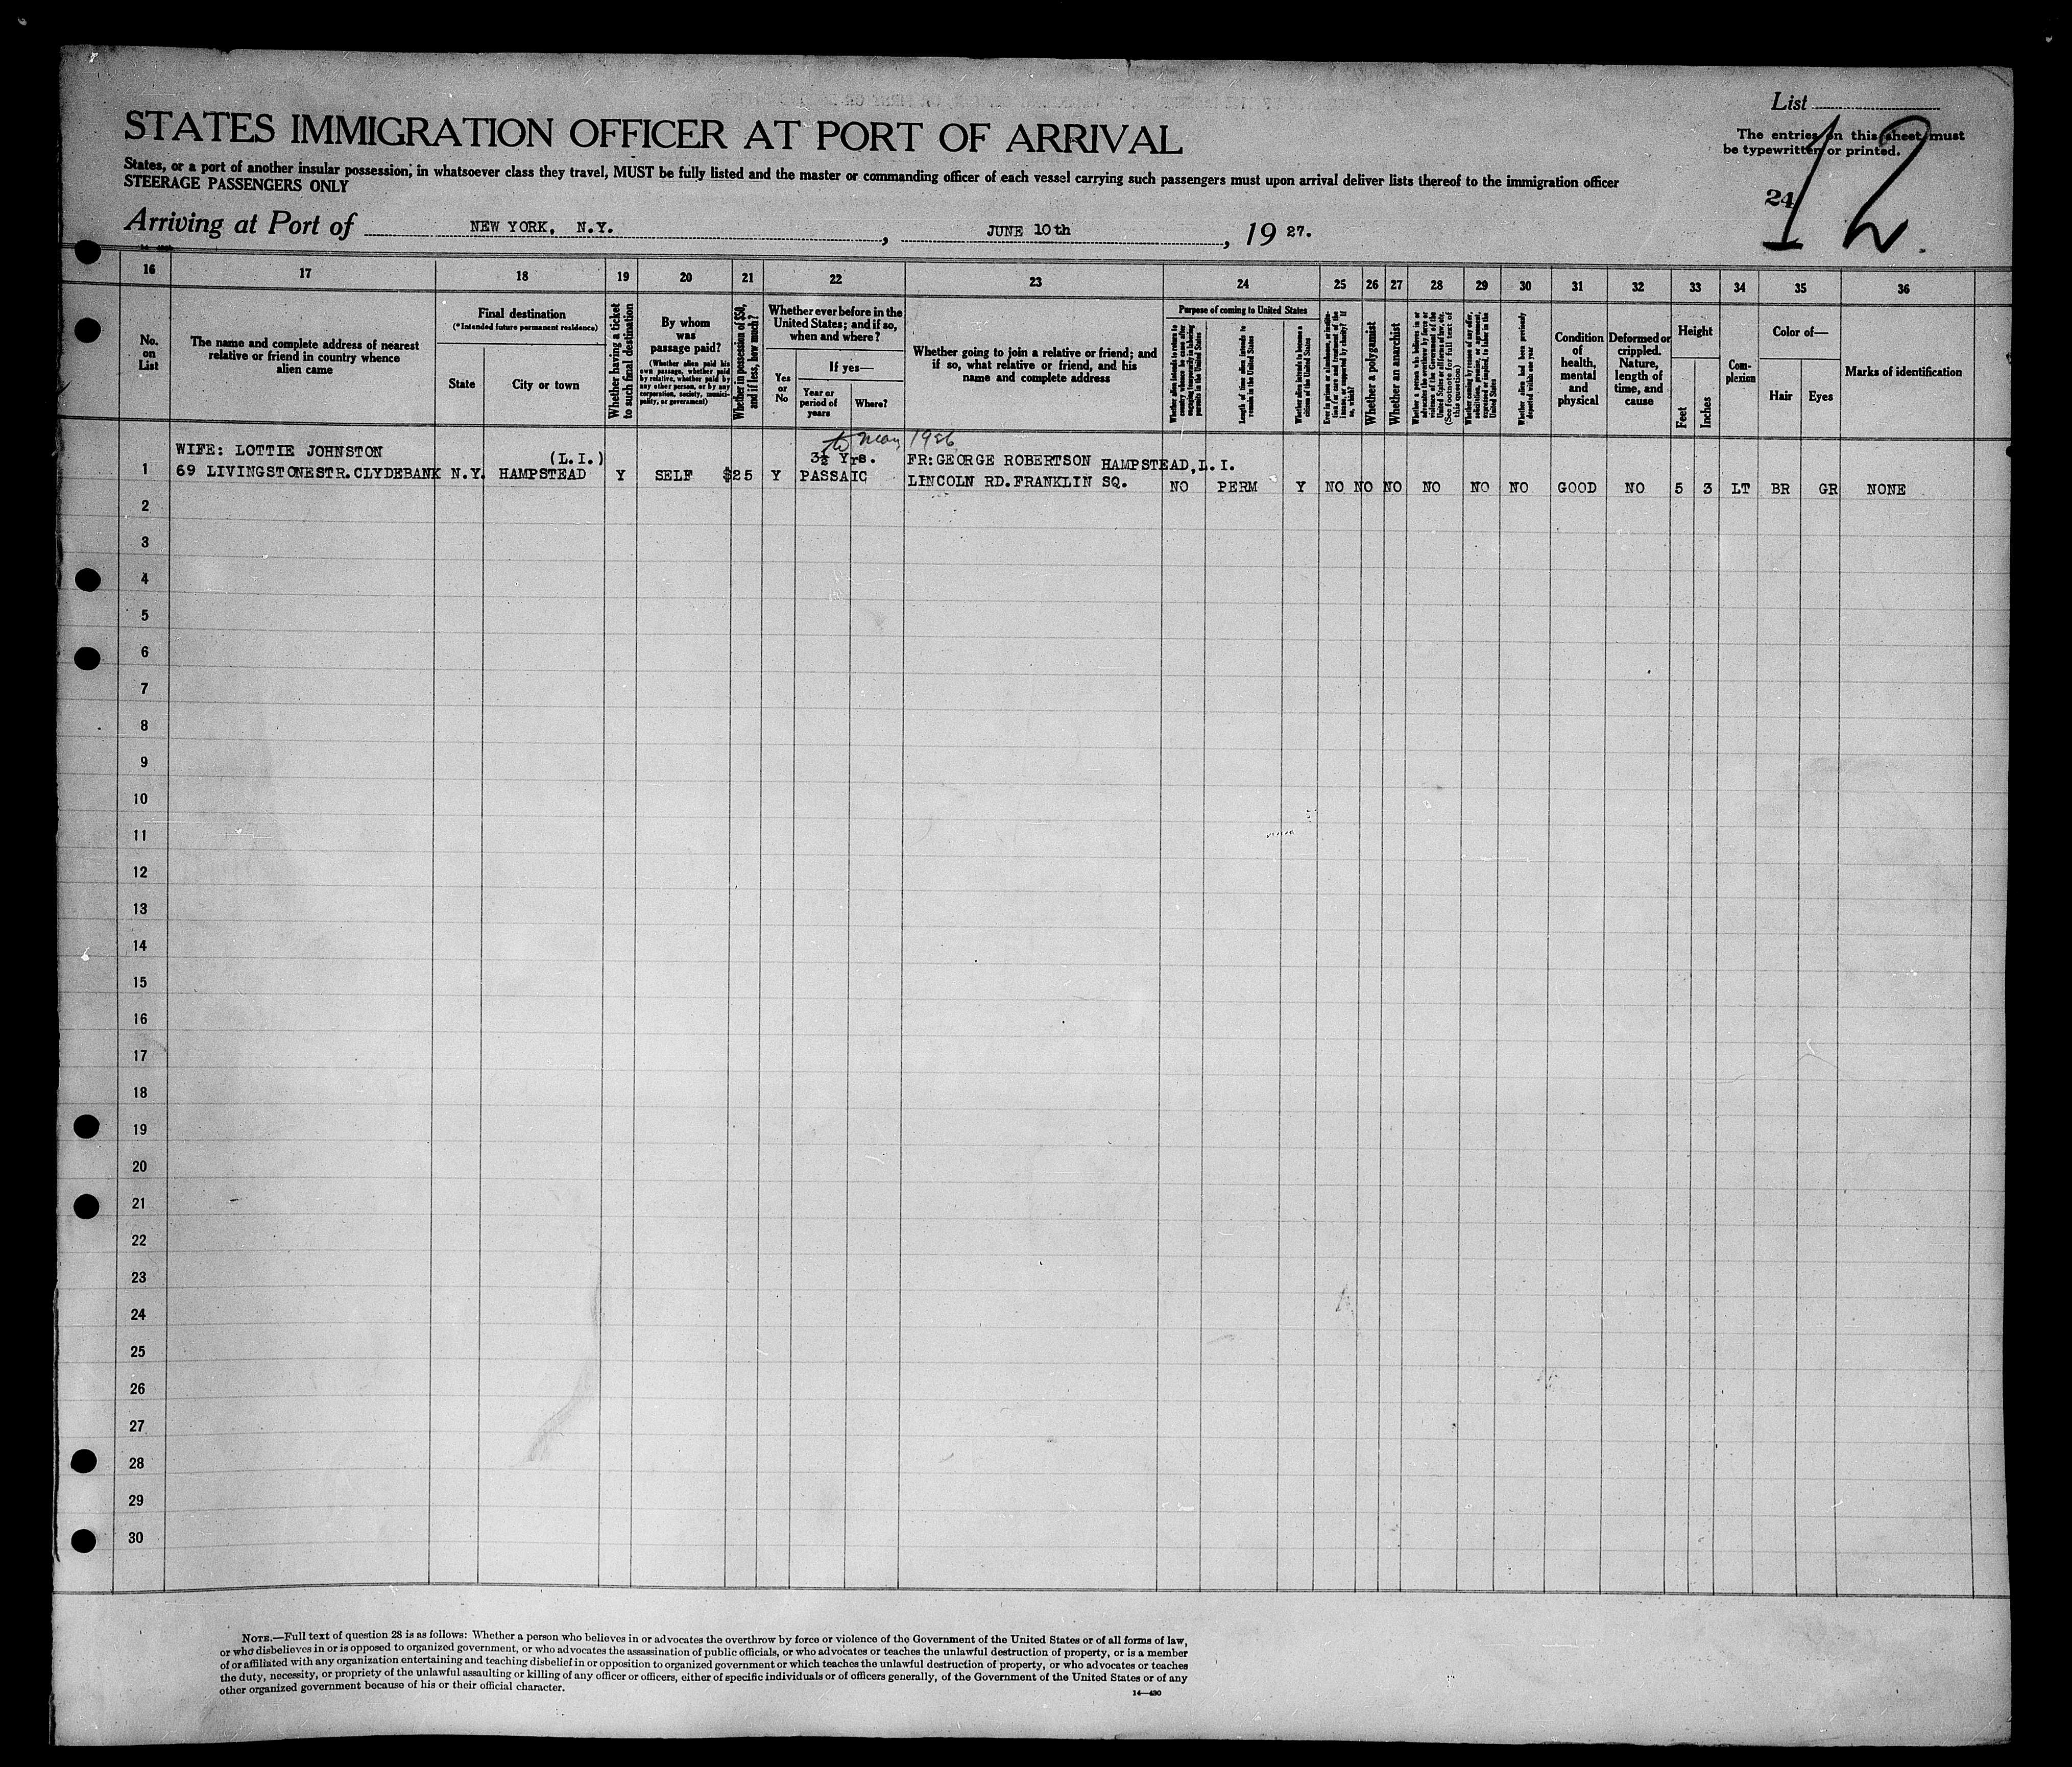 List
STATES IMMIGRATION OFFICER AT PORT OF ARRIVAL
The entries on this sheet must
be typewritten or printed.
States, or a port of another insular possession, in whatsoever class they travel, MUST be fully listed and the master or commanding officer of each vessel carrying such passengers must upon arrival deliver lists thereof to the immigration officer
STEERAGE PASSENGERS ONLY
24
12
Arriving at Port of NEW YORK, N.Y. , JUNE 10th , 19 27.
16 17 18 19 20 21 22 23 24 25 26 27 28 29 30 31 32 33 34 35 36
No.
on
List
The name and complete address of nearest
relative or friend in country whence
alien came
Final destination
(*Intended future permanent residence)
State
City or town
Whether having a ticket
to such final destination
By whom
was
passage paid?
(Whether alien paid his
own passage, whether paid
by relative, whether paid by
any other person, or by any
corporation, society, munici-
pality, or government)
Whether in possession of $50,
and if less, how much?
Whether ever before in the
United States; and if so,
when and where?
Yes
or
No
If yes—
Year or
period of
years
Where?
Whether going to join a relative or friend; and
if so, what relative or friend, and his
name and complete address
Purpose of coming to United States
Whether alien intends to return to
country whence he came after
engaging temporarily in laboring
pursuits in the United States
Length of time alien intends to
remain in the United States
Whether alien intends to become a
citizen of the United States
Ever in prison or almshouse, or institu-
tion for care and treatment of the
insane, or supported by charity? If
so, which?
Whether a polygamist
Whether an anarchist
Whether a person who believes in or
advocates the overthrow by force or
violence of the Government of the
United States or all forms of law, etc.
(See footnote for full text of
this question)
Whether coming by reason of any offer,
solicitation, promise, or agreement,
expressed or implied, to labor in the
United States
Whether alien had been previously
deported within one year
Condition
of
health,
mental
and
physical
Deformed or
crippled.
Nature,
length of
time, and
cause
Height
Feet
Inches
Com-
plexion
Color of—
Hair
Eyes
Marks of identification
to May 1926
WIFE: LOTTIE JOHNSTON (L.I.) 3½ Yrs. FR:GEORGE ROBERTSON HAMPSTEAD,L.I.
1 69 LIVINGSTONESTR.CLYDEBANK N.Y. HAMPSTEAD Y SELF $25 Y PASSAIC LINCOLN RD.FRANKLIN SQ. NO PERM Y NO NO NO NO NO NO GOOD NO 5 3 LT BR GR NONE
2
3
4
5
6
7
8
9
10
11
12
13
14
15
16
17
18
19
20
21
22
23
24
25
26
27
28
29
30
NOTE.—Full text of question 28 is as follows: Whether a person who believes in or advocates the overthrow by force or violence of the Government of the United States or of all forms of law,
or who disbelieves in or is opposed to organized government, or who advocates the assassination of public officials, or who advocates or teaches the unlawful destruction of property, or is a member
of or affiliated with any organization entertaining and teaching disbelief in or opposition to organized government or which teaches the unlawful destruction of property, or who advocates or teaches
the duty, necessity, or propriety of the unlawful assaulting or killing of any officer or officers, either of specific individuals or of officers generally, of the Government of the United States or of any
other organized government because of his or their official character.
14—430